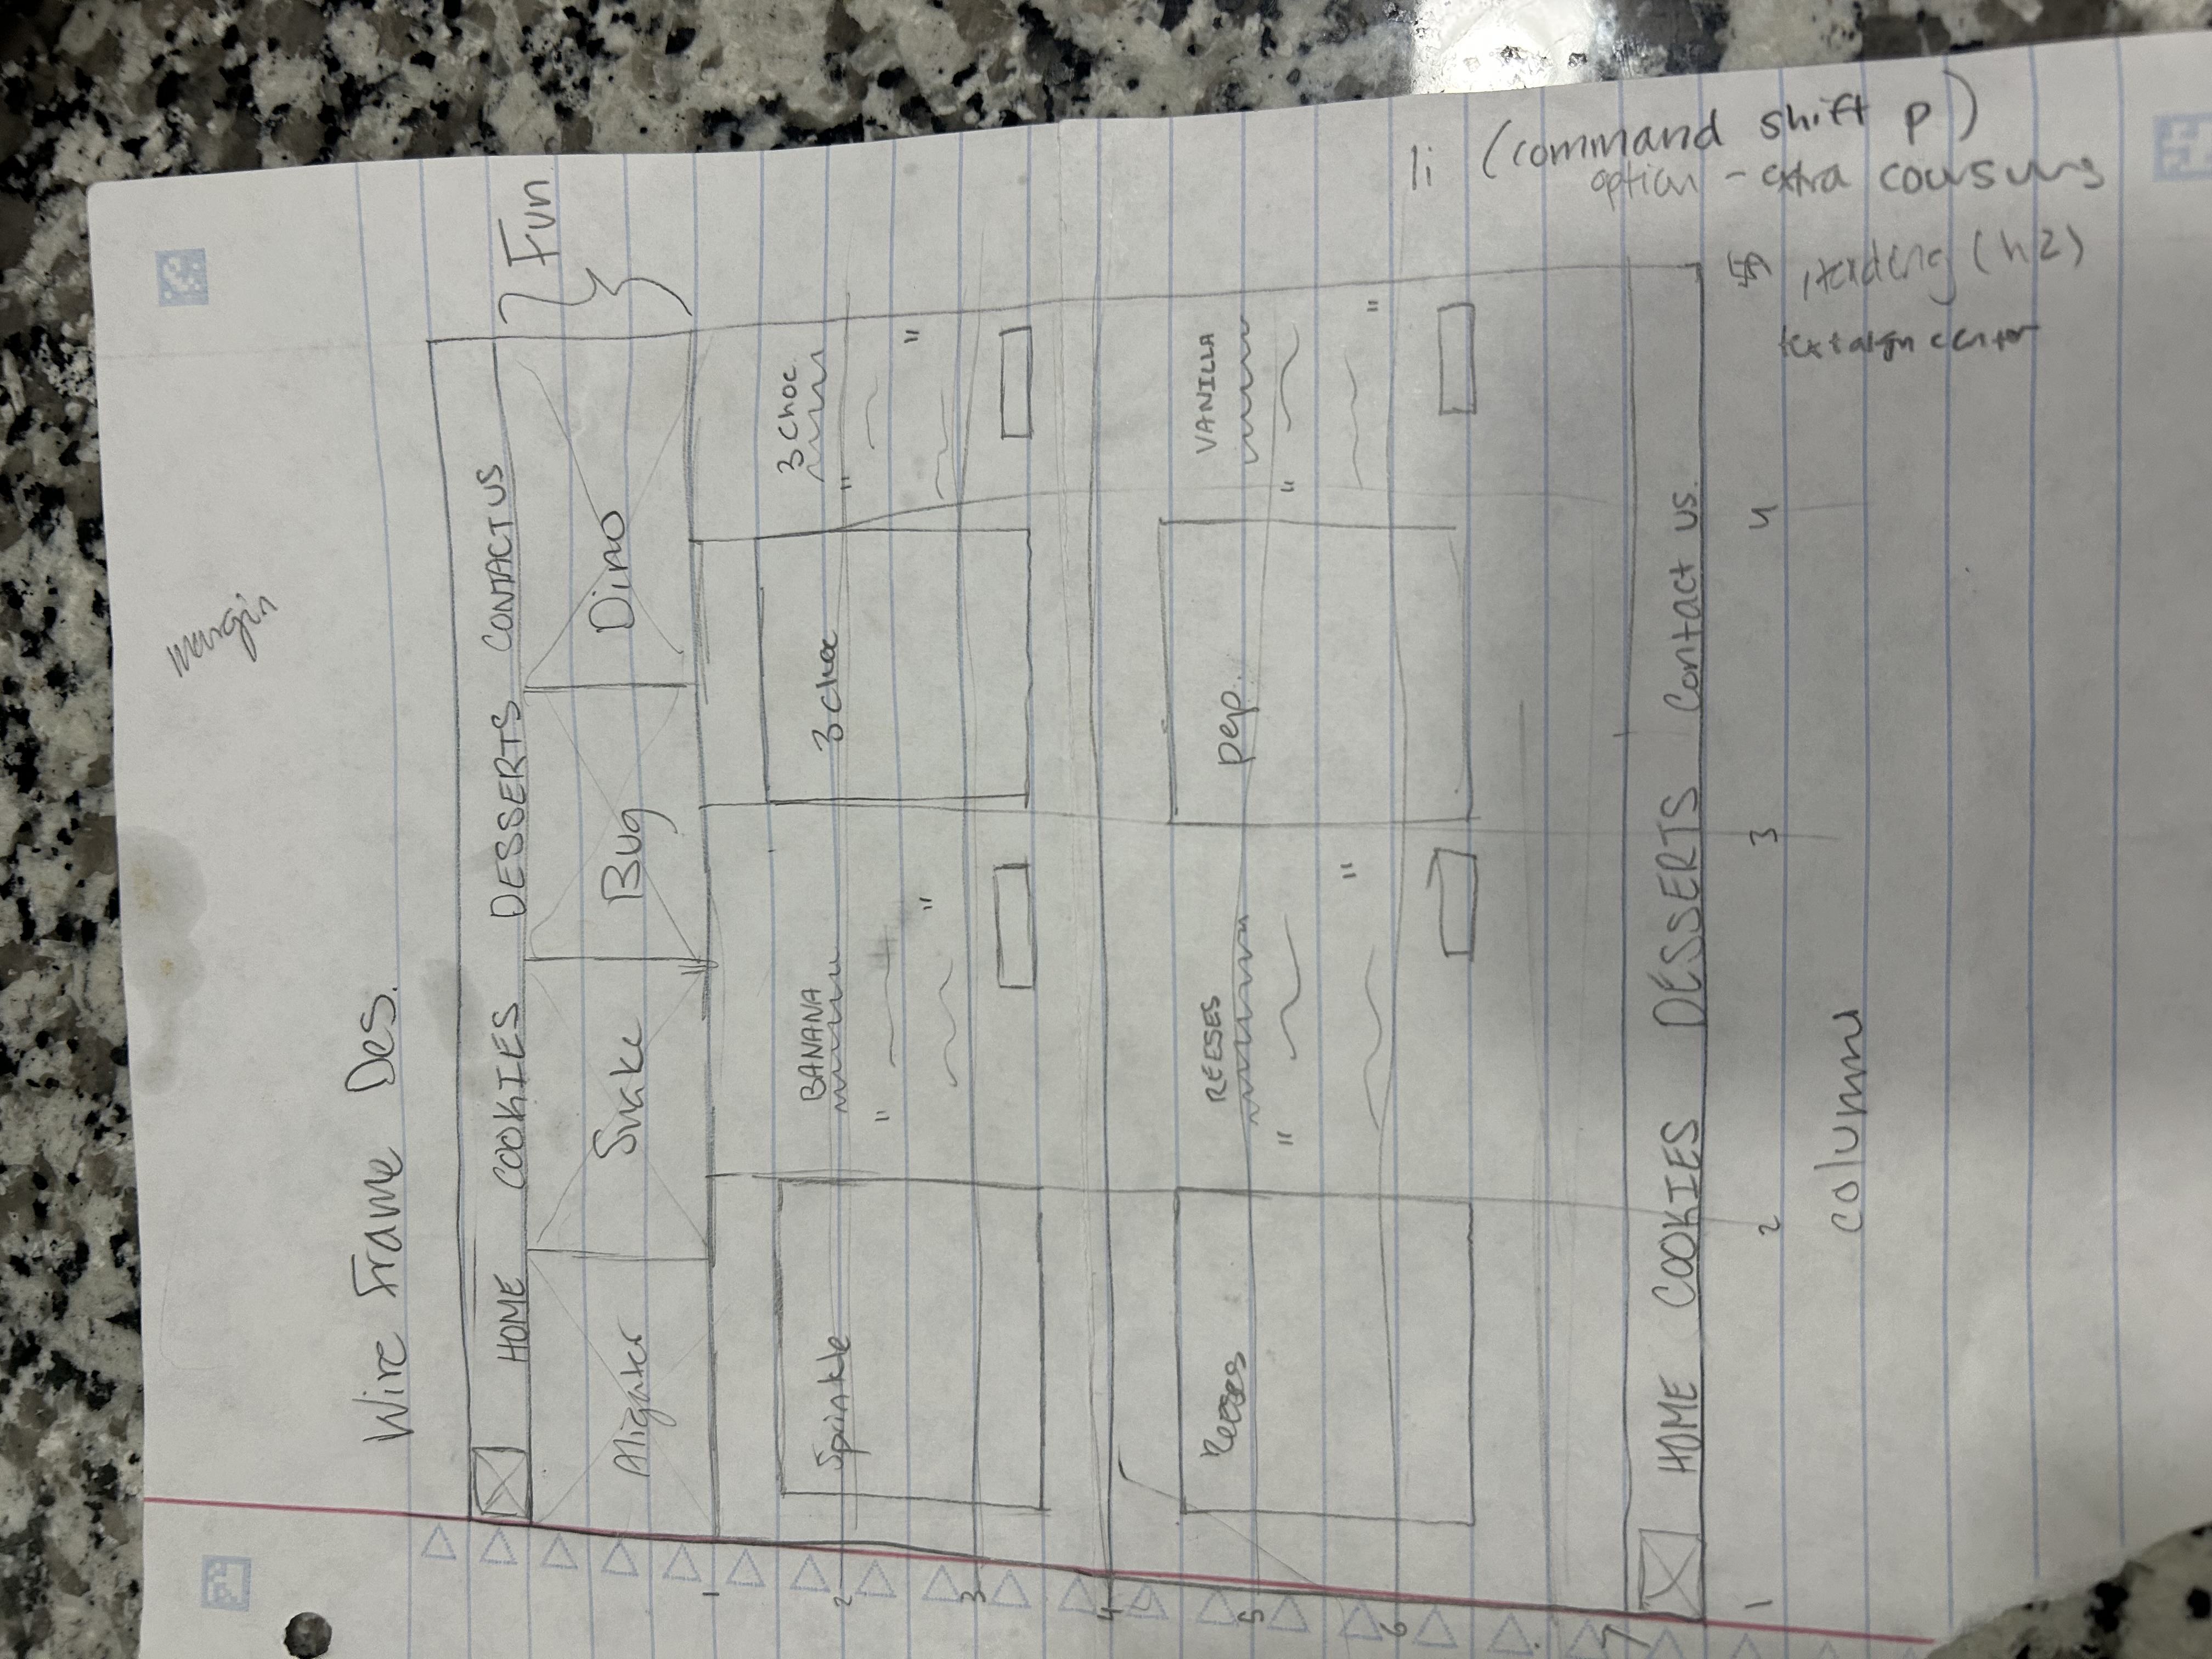 margin
Wire Frame Des.
HOME COOKIES DESSERTS CONTACT US
Fun
Aligater Snake Bug Dino
1
Sprinkle BANANA 3 choc 3 Choc.
2
" "
" "
3
4
Reeses REESES pep. VANILLA
5
" "
" "
6
7
HOME COOKIES DESSERTS Contact us.
1 2 3 4
columns
li (command shift p)
option - extra coursurs
heading (h2)
text align center